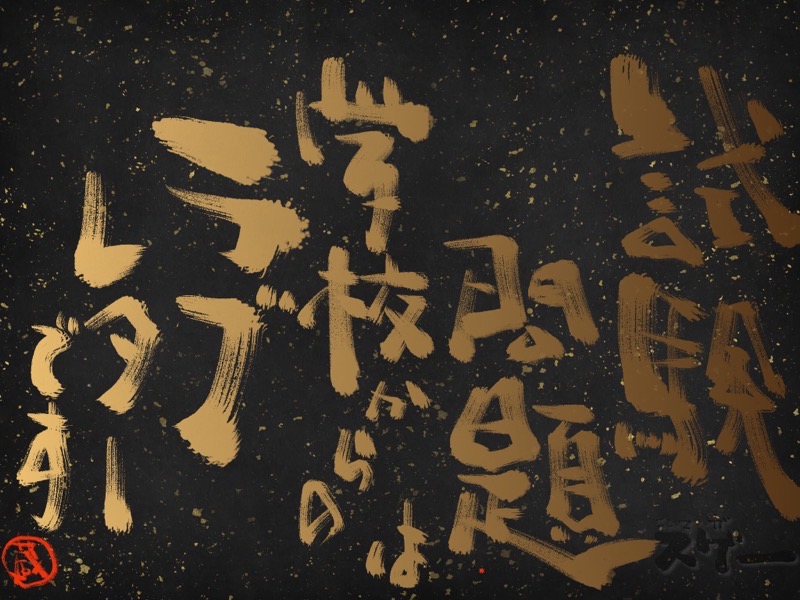 試験
問題は
学校からの
ラブ
レター
です
スゲー